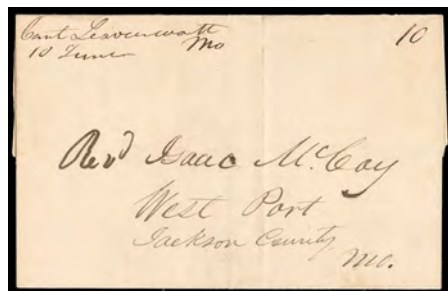 Cant Leavenworth
Mo
10 June
10
Revd Isaac McCoy
West Port
Jackson County
Mo.